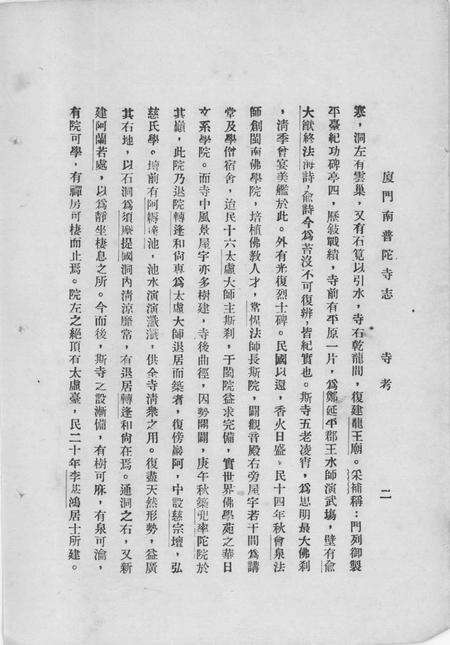 廈門南普陀寺志　寺考　二
寒，洞左有雲巢，又有石筧以引水，寺右乾龍間，復建龍王廟。采補稱：門列御製
平臺紀功碑亭四，歷敍戰績，寺前有平原一片，爲鄭延平郡王水師演武場，壁有俞
大猷終法海詩，俞詩今爲苔沒不可復辨，皆紀實也。斯寺五老凌霄，爲思明最大佛刹
，清季曾宴美艦於此。外有光復烈士碑。民國以還，香火日盛。民十四年秋會泉法
師創閩南佛學院，培植佛教人才，常惺法師長斯院，闢觀音殿右旁屋宇若干間爲講
堂及學僧宿舍，迨民十六太虛大師主斯刹，于閩院益求完備，實世界佛學苑之華日
文系學院。而寺中風景屋宇亦多樹建，寺後曲徑，因勢開闢，庚午秋築兜率陀院於
其巔，此院乃退院轉逢和尙專爲太虛大師退居而築者，復傍巖阿，中設慈宗壇，弘
慈氏學。墻前有阿耨達池，池水演演瀲瀲，供全寺清衆之用。復盡天然形勢，益廣
其右地，以石洞爲須摩提國洞內清涼靡常，有退居轉逢和尙在焉。通洞之右，又新
建阿蘭若處，以爲靜坐棲息之所。今而後，斯寺之設漸備，有樹可庥，有泉可瀹，
有院可學，有禪房可棲而止焉。院左之絕頂有太虛臺，民二十年李基鴻居士所建。